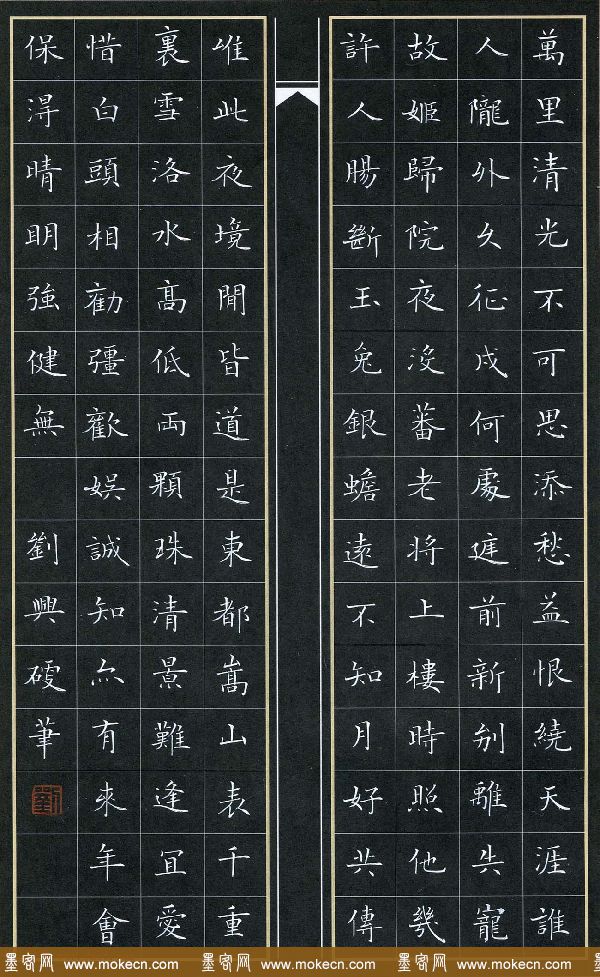 萬里清光不可思添愁益恨繞天涯誰
人隴外久征戍何處庭前新別離失寵
故姬歸院夜沒蕃老将上樓時照他幾
許人腸斷玉兔銀蟾遠不知月好共傳
唯此夜境聞皆道是東都嵩山表千重
裏雪洛水髙低兩顆珠清景難逢宜愛
惜白頭相勸彊歡娯誠知亦有來年會
保得晴明強健無 劉興硬筆
墨客网 www.mokecn.com 墨客网 www.mokecn.com 墨客网 www.mokecn.com 墨客网 www.mokecn.com